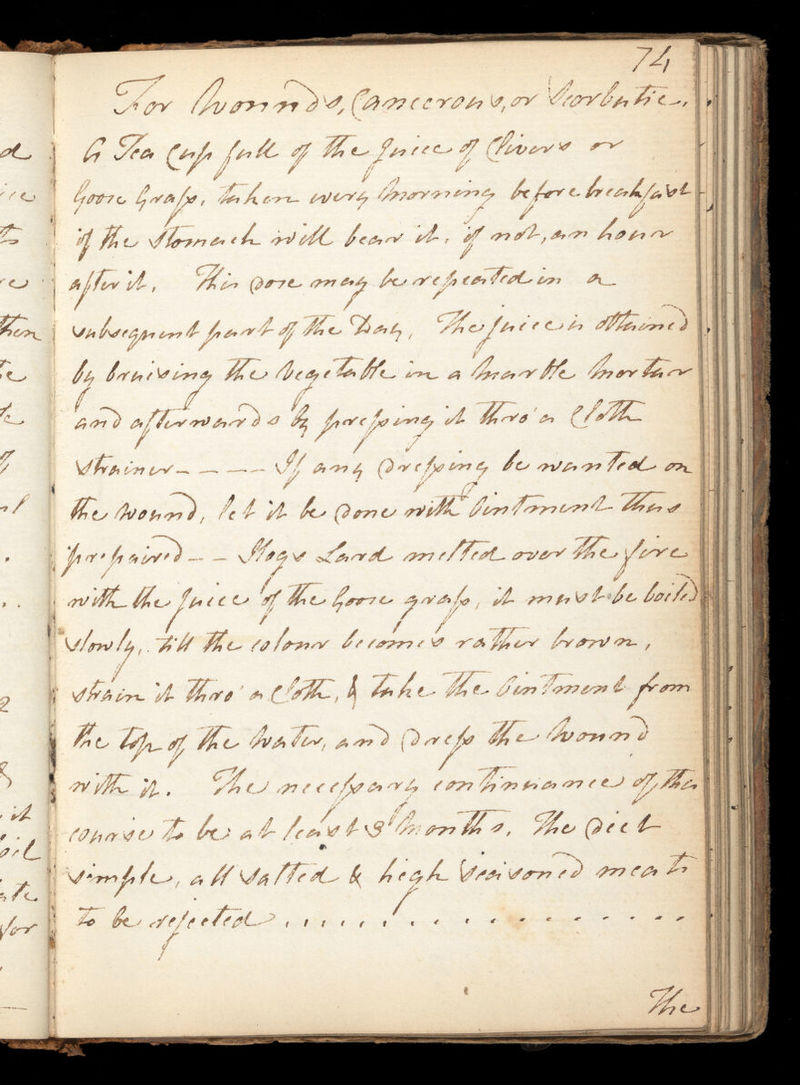 74
For Wounds, Cancerous, or Scorbutic.
A Tea Cup full of the juice of Clivers or
Goose Grass, taken every Morning before breakfast
if the Stomach will bear it, if not, an hour
after it. This Dose may be repeated in a
subsequent part of the Day. The juice is obtained
by bruising the Vegetable in a Marble Mortar
and afterwards by pressing it thro' a Cloth
Strainer - - - - If any Dressing be wanted on
the Wound, let it be Done with Ointment thus
prepaired - - Hogs Lard melted over the fire
with the juice of the Goose grass, it must be boiled
slowly, till the colour becomes rather brown,
strain it thro' a Cloth, & take the Ointment from
the top of the Water, and Dress the Wound
with it. The necessary continuance of this
course to be at least 3 Months. The Diet
simple, all Salted & high Seasoned meats
to be rejected . . . . . . . . . . . . . . . .
The